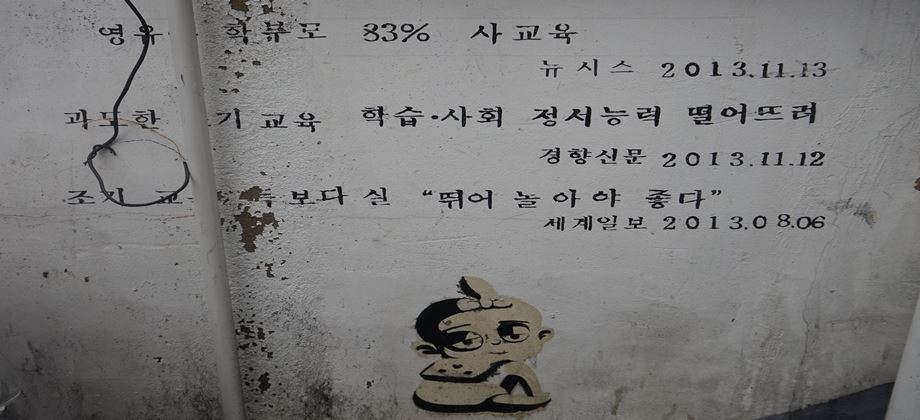 영유 학뷰모 83% 사교육
뉴시스 2013.11.13
과도한 기 교육 학습·사회 정서능력 떨어뜨려
경향신문 2013.11.12
조기 보다 실 “뛰어 놀아야 좋다”
세계일보 2013.08.06